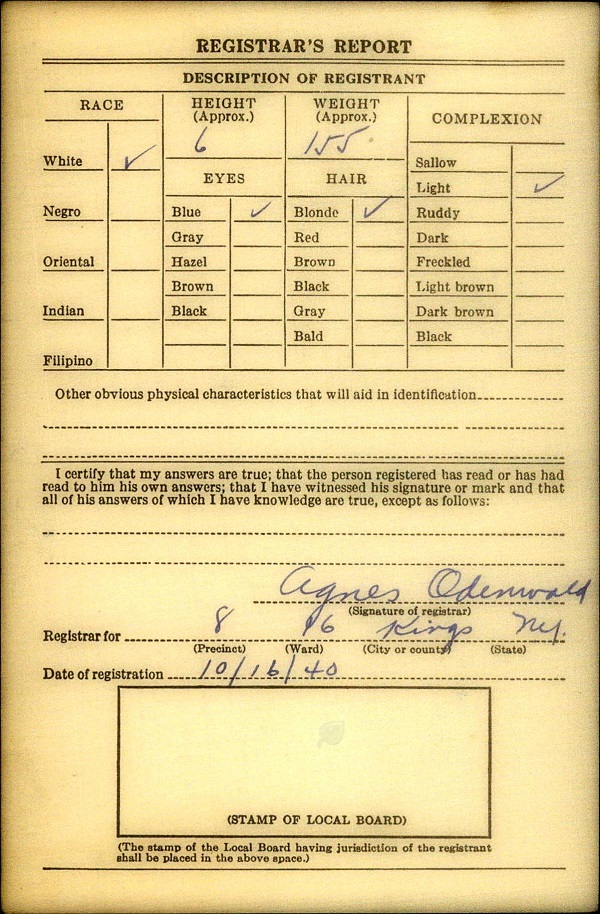 REGISTRAR'S REPORT
DESCRIPTION OF REGISTRANT
RACE
HEIGHT (Approx.)
WEIGHT (Approx.)
COMPLEXION
6
155
White ✓
EYES
HAIR
Sallow
Light ✓
Negro
Blue ✓
Blonde ✓
Ruddy
Gray
Red
Dark
Oriental
Hazel
Brown
Freckled
Brown
Black
Light brown
Indian
Black
Gray
Dark brown
Bald
Black
Filipino
Other obvious physical characteristics that will aid in identification
I certify that my answers are true; that the person registered has read or has had
read to him his own answers; that I have witnessed his signature or mark and that
all of his answers of which I have knowledge are true, except as follows:
Agnes Odenwald
(Signature of registrar)
Registrar for 8 16 Kings N.Y.
(Precinct) (Ward) (City or county) (State)
Date of registration 10/16/40
(STAMP OF LOCAL BOARD)
(The stamp of the Local Board having jurisdiction of the registrant
shall be placed in the above space.)